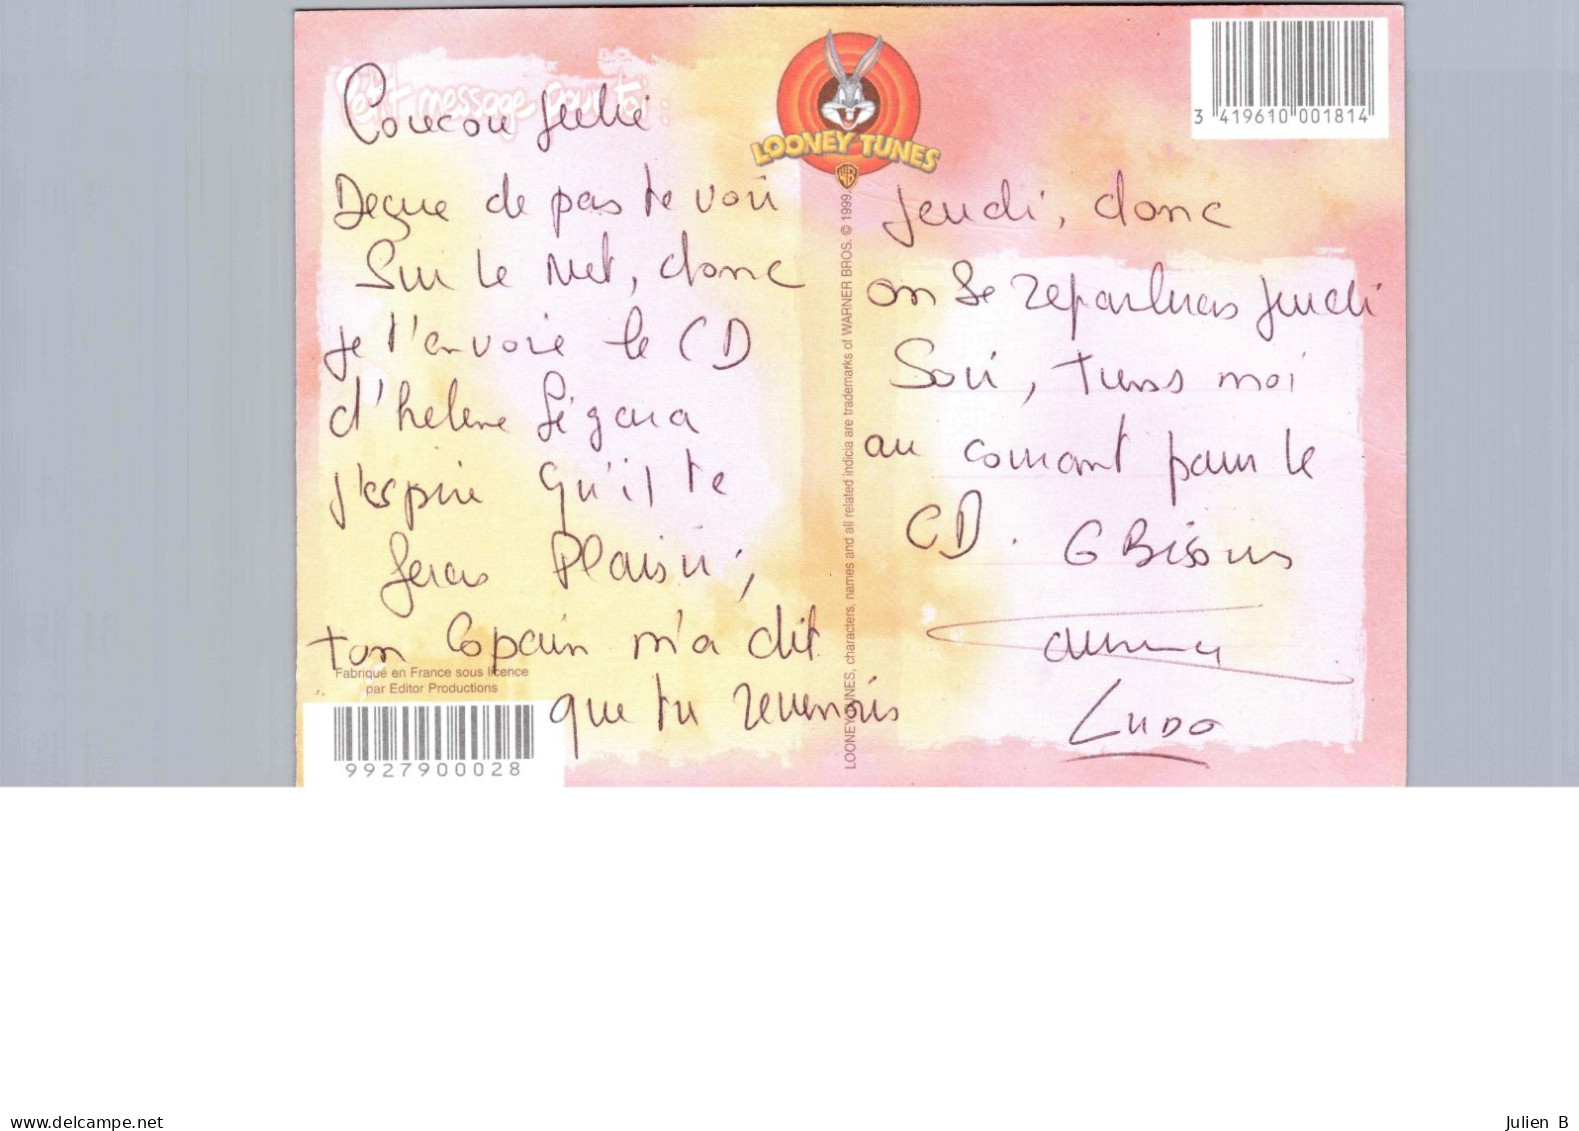 P'tit message pour toi :
Coucou Julie
Deçue de pas te voir
Sur le Net, donc
je t'envoie le CD
d'helene Ségara
j'espère qu'il te
feras Plaisir,
ton Copain m'a dit
que tu revenais
Jeudi, donc
on se reparleras jeudi
Soir, tiens moi
au courant pour le
CD. G Bisous
Ludo
LOONEY TUNES
WB
LOONEY TUNES, characters, names and all related indicia are trademarks of WARNER BROS. © 1999.
3 419610 001814
Fabriqué en France sous licence
par Editor Productions
9927900028
www.delcampe.net
Julien B